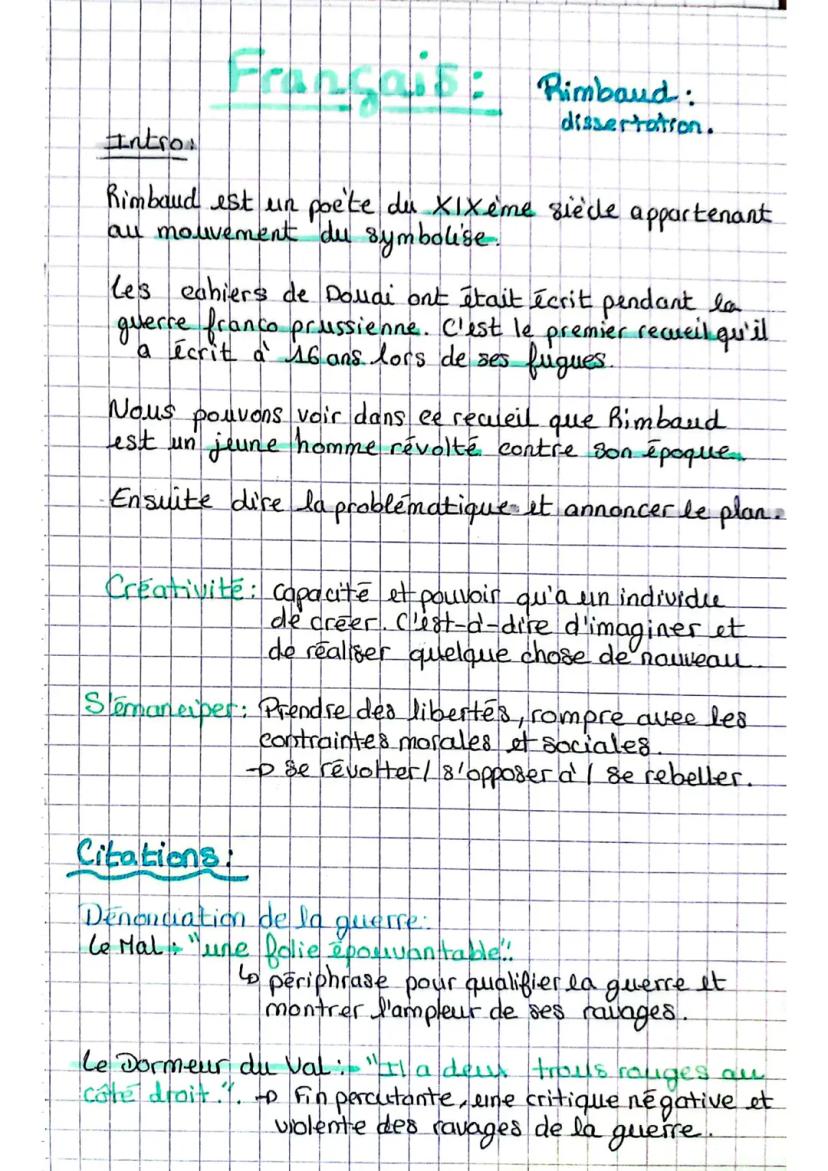 Français :
Rimbaud :
dissertation.
Intro :
Rimbaud est un poète du XIXème siècle appartenant
au mouvement du symbolise.
Les cahiers de Douai ont était écrit pendant la
guerre franco prussienne. C'est le premier recueil qu'il
a écrit à 16 ans lors de ses fugues.
Nous pouvons voir dans ce recueil que Rimbaud
est un jeune homme révolté contre son époque.
Ensuite dire la problématique et annoncer le plan.
Créativité : capacité et pouvoir qu'a un individu
de créer. C'est-à-dire d'imaginer et
de réaliser quelque chose de nouveau.
S'émanciper : Prendre des libertés, rompre avec les
contraintes morales et sociales.
→ se révolter / s'opposer à / se rebeller.
Citations :
Dénonciation de la guerre :
Le Mal : "une folie épouvantable".
↳ périphrase pour qualifier la guerre et
montrer l'ampleur de ses ravages.
Le Dormeur du Val : "Il a deux trous rouges au
côté droit.". → Fin percutante, une critique négative et
violente des ravages de la guerre.